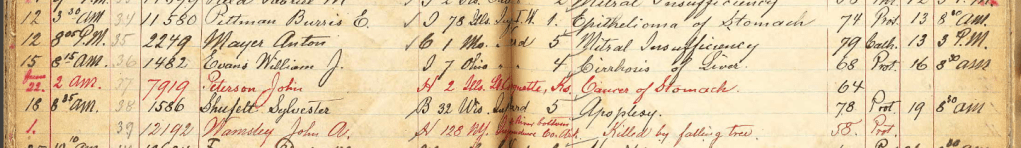 12 3 30 AM 34 11580 Pittman Burris E. I 78 Ills Inft. W. 1. Epithelioma of Stomach 74 Prot. 13 8 30 AM.
12 8 05 P.M. 35 2249 Mayer Anton G 1 Mo. 5 Mitral Insufficiency 79 Cath. 13 3 P.M.
15 8 15 AM. 36 1482 Evans William J. I 7 Ohio " " 4 Cirrhosis of Liver 68 Prot. 16 8 30 AM
22. 2 am. 37 7919 Peterson John H 2 Ills. Ks. Cancer of Stomach 64
18 8 35 AM. 38 1586 Shufelt Sylvester B 32 Wis. 5 Apoplexy. 78 Prot 19 8 30 AM
1. 39 12192 Wamsley John A. H 128 NY. Co. Ark. Killed by falling tree. 58. Prot.